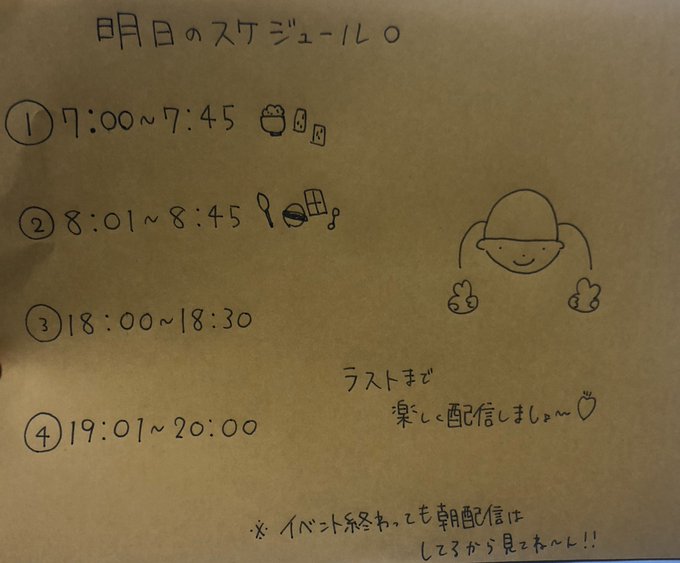 明日のスケジュール○
① 7:00~7:45
② 8:01~8:45
③ 18:00~18:30
④ 19:01~20:00
ラストまで
楽しく配信しましょ〜♡
※ イベント終わっても朝配信は
してるから見てね〜ん!!